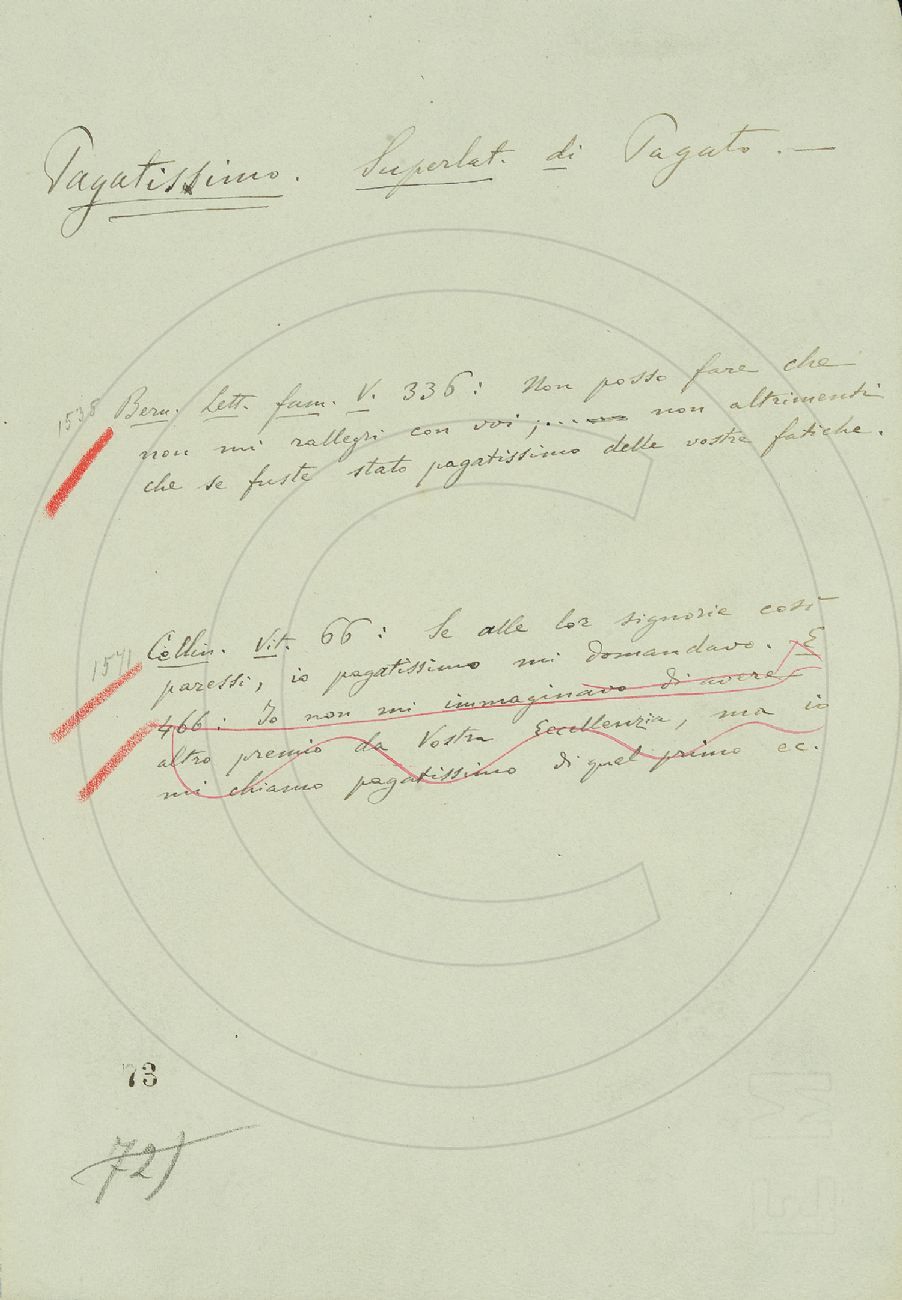 Pagatissimo. Superlat. di Pagato. —
1538 Bern. Lett. fam. V. 336: Non posso fare che
non mi rallegri con voi;.... non altrimenti
che se fuste stato pagatissimo delle vostre fatiche.
1571 Cellin. Vit. 66: Se alle lor signorie così
paressi, io pagatissimo mi domandavo. E
466: Io non mi immaginavo di avere
altro premio da Vostra Eccellenzia, ma io
mi chiamo pagatissimo di quel primo ec.
73
72)